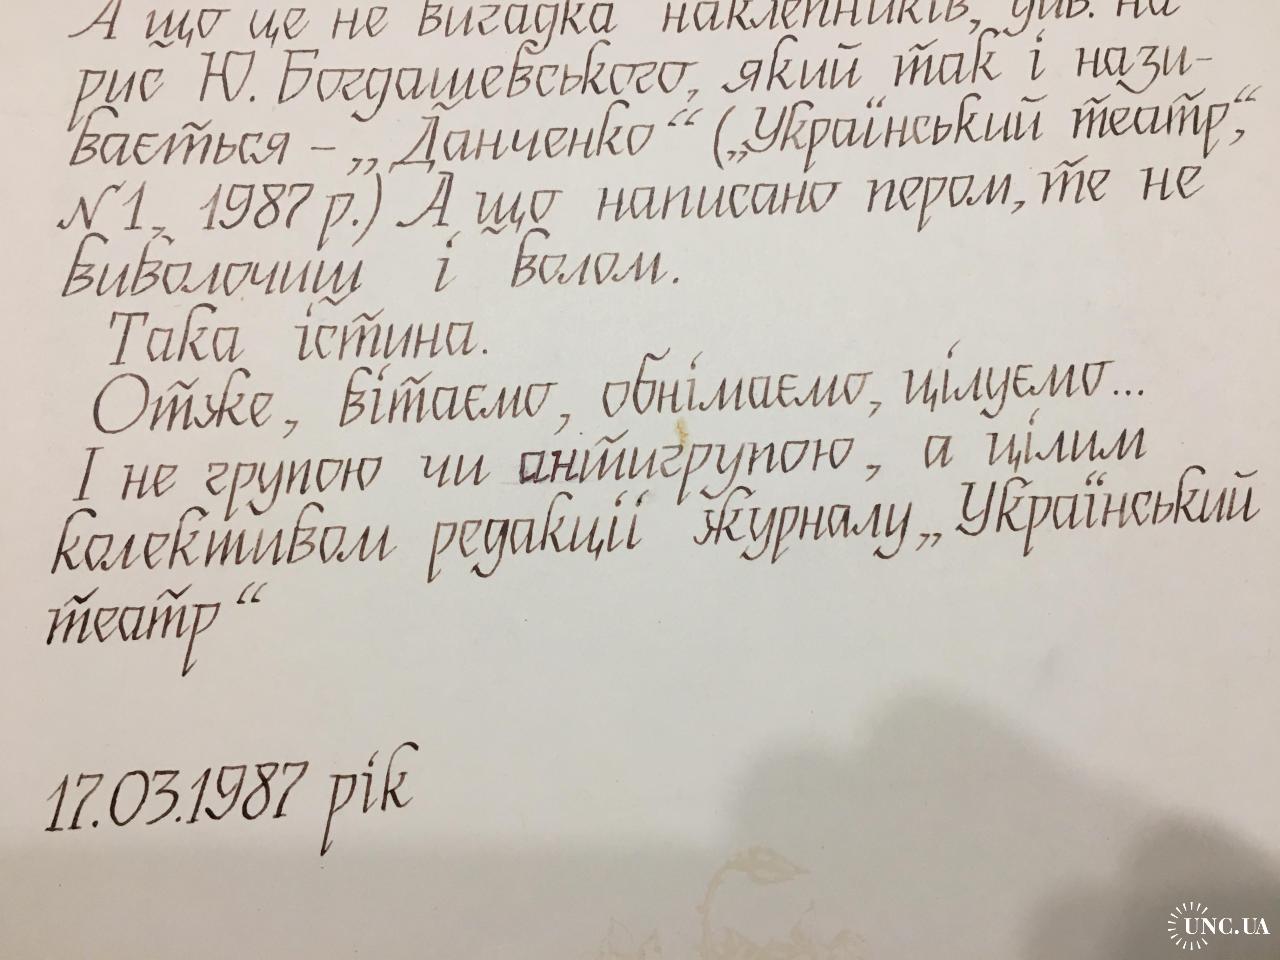 А що це не вигадка наклепників, див. на
рис Ю. Богдашевського, який так і нази-
вається – „Данченко“ („Український театр“,
№1, 1987 р.) А що написано пером, те не
виволочиш і волом.
Така істина.
Отже, вітаємо, обнімаємо, цілуємо...
І не групою чи антигрупою, а цілим
колективом редакції журналу „Український
театр“
17.03.1987 рік
UNC.UA